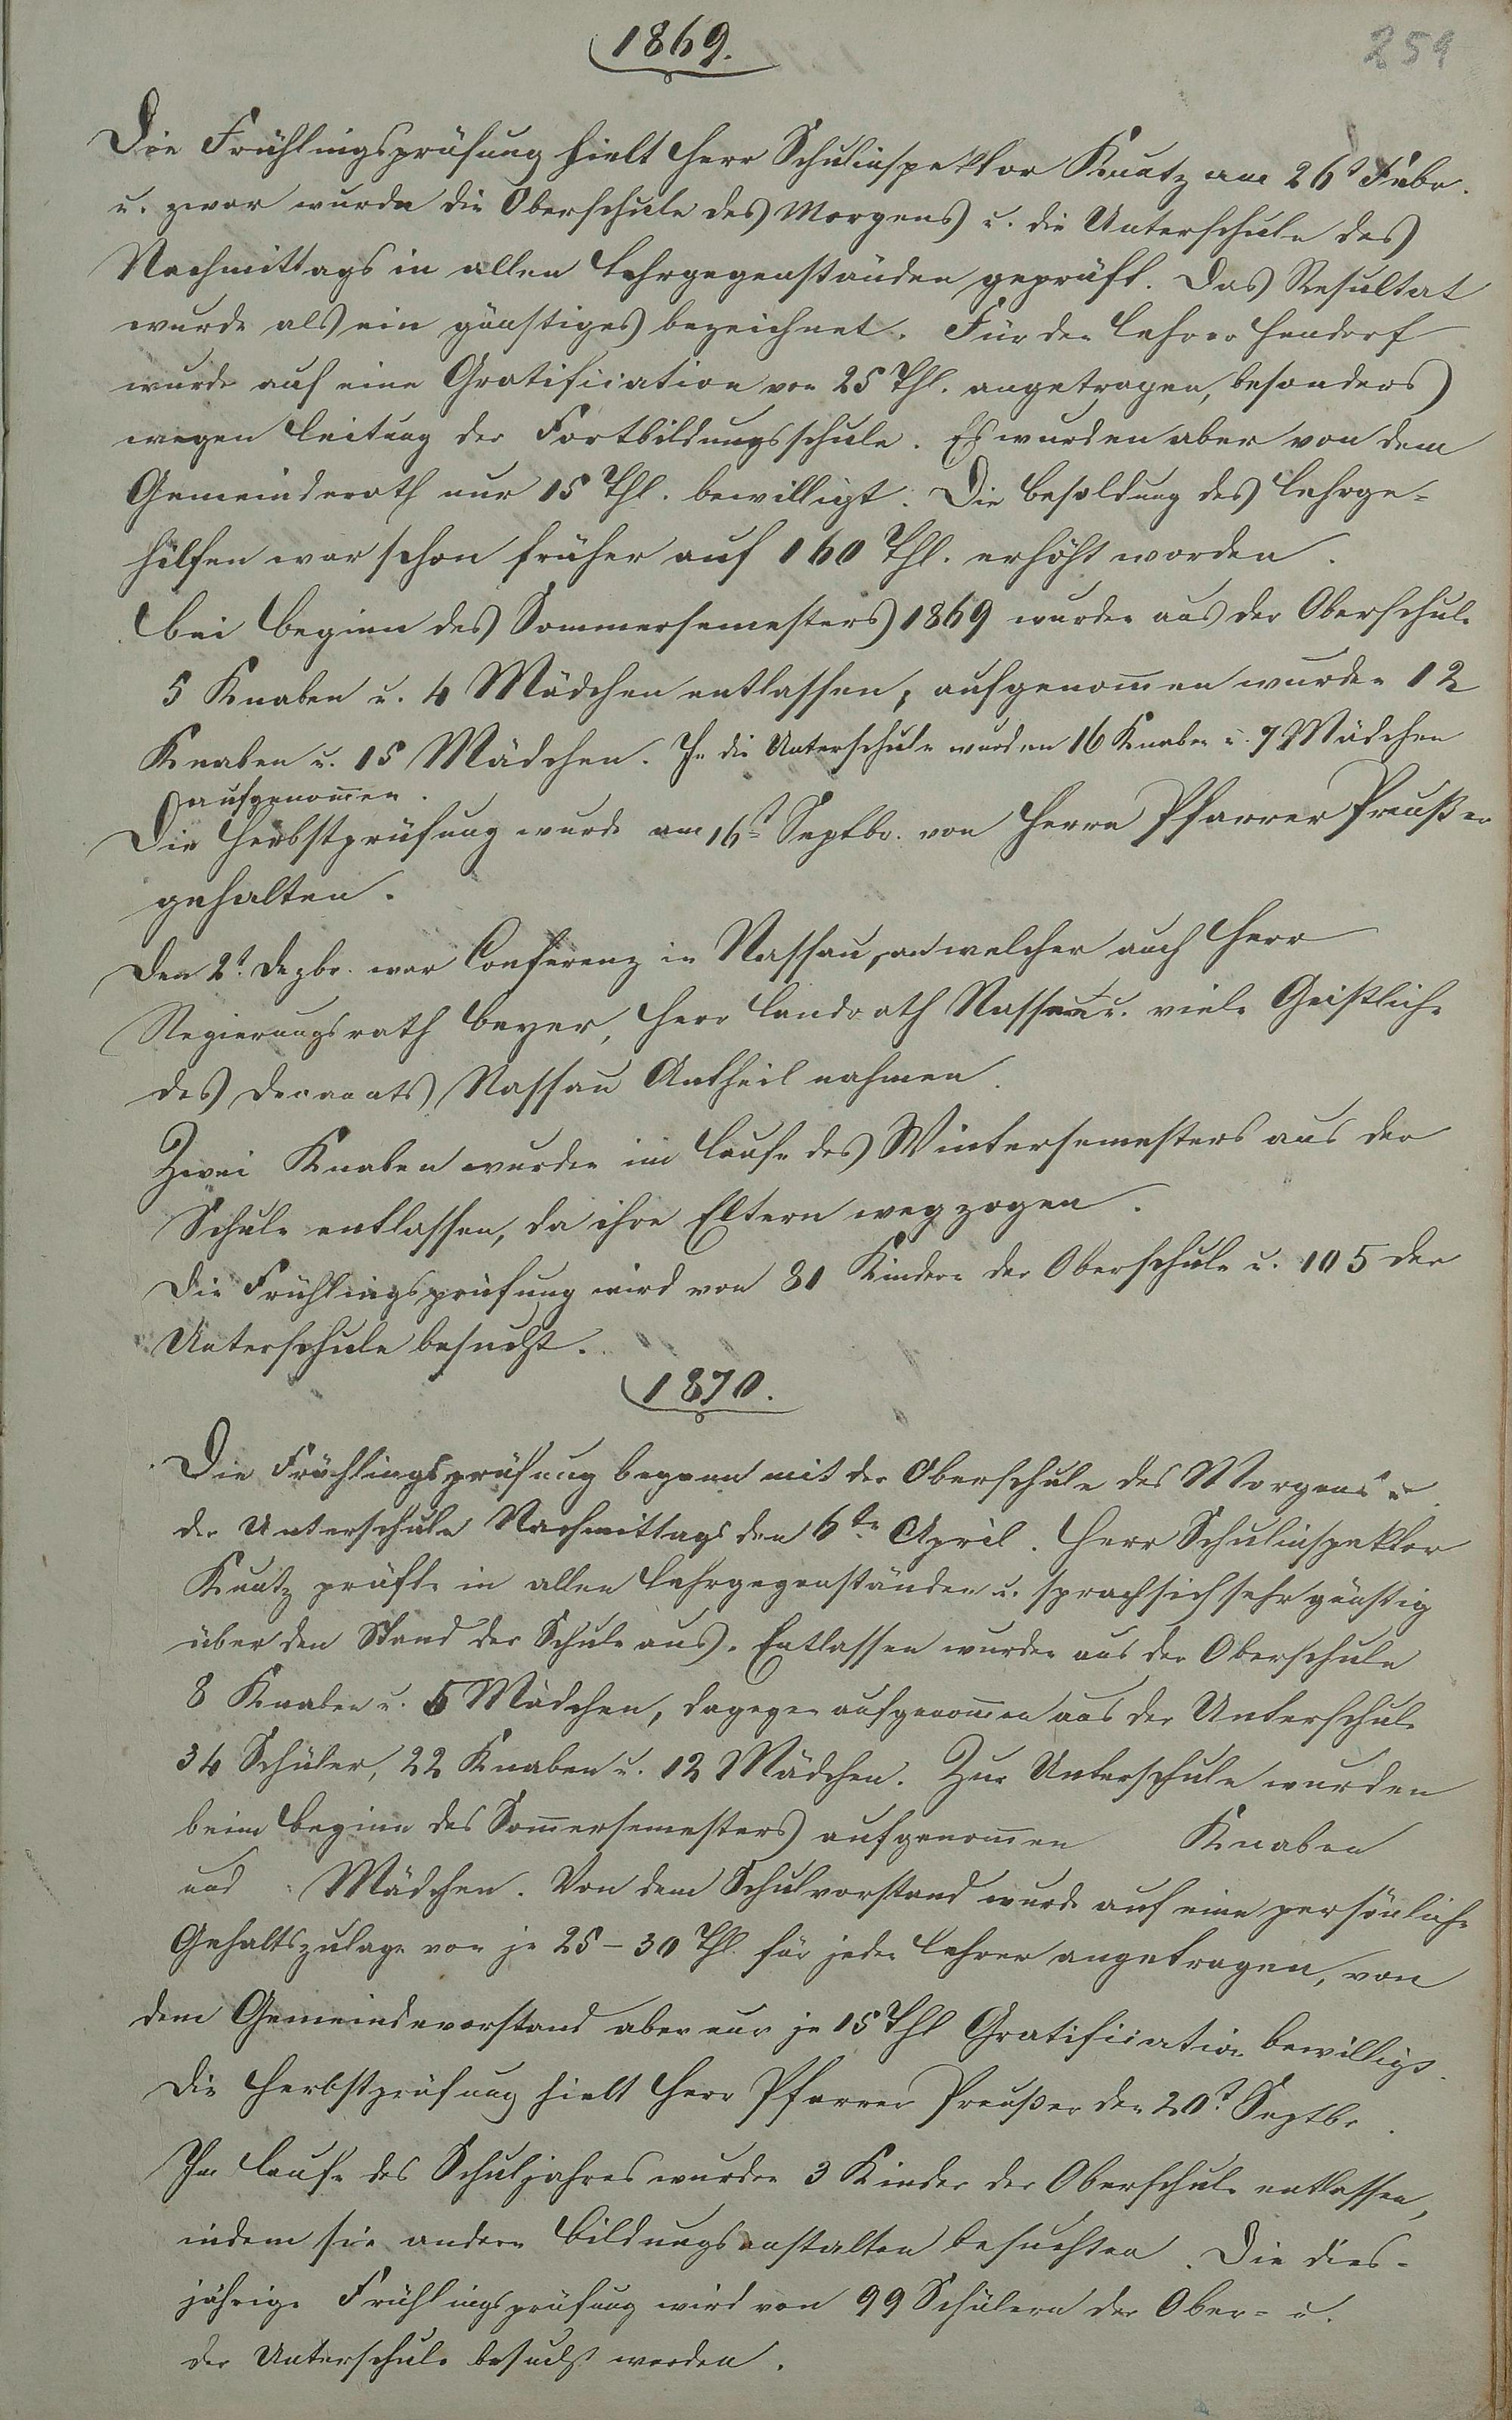 1869.
259
Die Frühlingsprüfung hielt Herr Schulinspektor Kuntz am 26t Febr.
u. zwar wurde die Oberschule des Morgens u. die Unterschule des
Nachmittags in allen Lehrgegenständen geprüft. Das Resultat
wurde als ein günstiges bezeichnet. Für den Lehrer Hendorf
wurde auf eine Gratification von 25 Thl. angetragen, besonders
wegen Leitung der Fortbildungsschule. Es wurden aber von dem
Gemeinderath nur 15 Thl. bewilligt. Die Besoldung des Lehrge-
hilfen war schon früher auf 160 Thl. erhöht worden.
Bei Beginn des Sommersemesters 1869 wurden aus der Oberschule
5 Knaben u. 4 Mädchen entlassen, aufgenom̅en wurden 12
Knaben u. 15 Mädchen. In die Unterschule wurden 16 Knaben u. 7 Mädchen
aufgenom̅en.
Die Herbstprüfung wurde am 16t Septbr. von Herrn Pfarrer Preußer
gehalten.
Den 2t. Dezbr. war Conferenz in Nassau, an welcher auch Herr
Regierungsrath Beyer, Herr Landrath Nasse u. viele Geistliche
des Decanats Nassau Antheil nahmen.
Zwei Knaben wurden im Laufe des Wintersemesters aus der
Schule entlassen, da ihre Eltern wegzogen.
Die Frühlingsprüfung wird von 81 Kindern der Oberschule u. 105 der
Unterschule besucht.
1870.
Die Frühlingsprüfung begann mit der Oberschule des Morgens u.
der Unterschule Nachmittags den 6ten April. Herr Schulinspektor
Kuntz prüfte in allen Lehrgegenständen u. sprach sich sehr günstig
über den Stand der Schule aus. Entlassen wurden aus der Oberschule
8 Knaben u. 5 Mädchen, dagegen aufgenom̅en aus der Unterschule
34 Schüler, 22 Knaben u. 12 Mädchen. Zur Unterschule wurden
beim Beginn des Som̅ersemesters aufgenom̅en Knaben
und Mädchen. Von dem Schulvorstand wurde auf eine persönliche
Gehaltszulage von je 25-30 Thl. für jeden Lehrer angetragen, von
dem Gemeindevorstand aber nur je 15 Thl Gratification bewilligt.
Die Herbstprüfung hielt Herr Pfarrer Preußer den 20t. Septbr.
Im Laufe des Schuljahres wurden 3 Kinder der Oberschule entlassen,
indem sie andere Bildungsanstalten besuchten. Die dies-
jährige Frühlingsprüfung wird von 99 Schülern der Ober- u.
der Unterschule besucht werden.